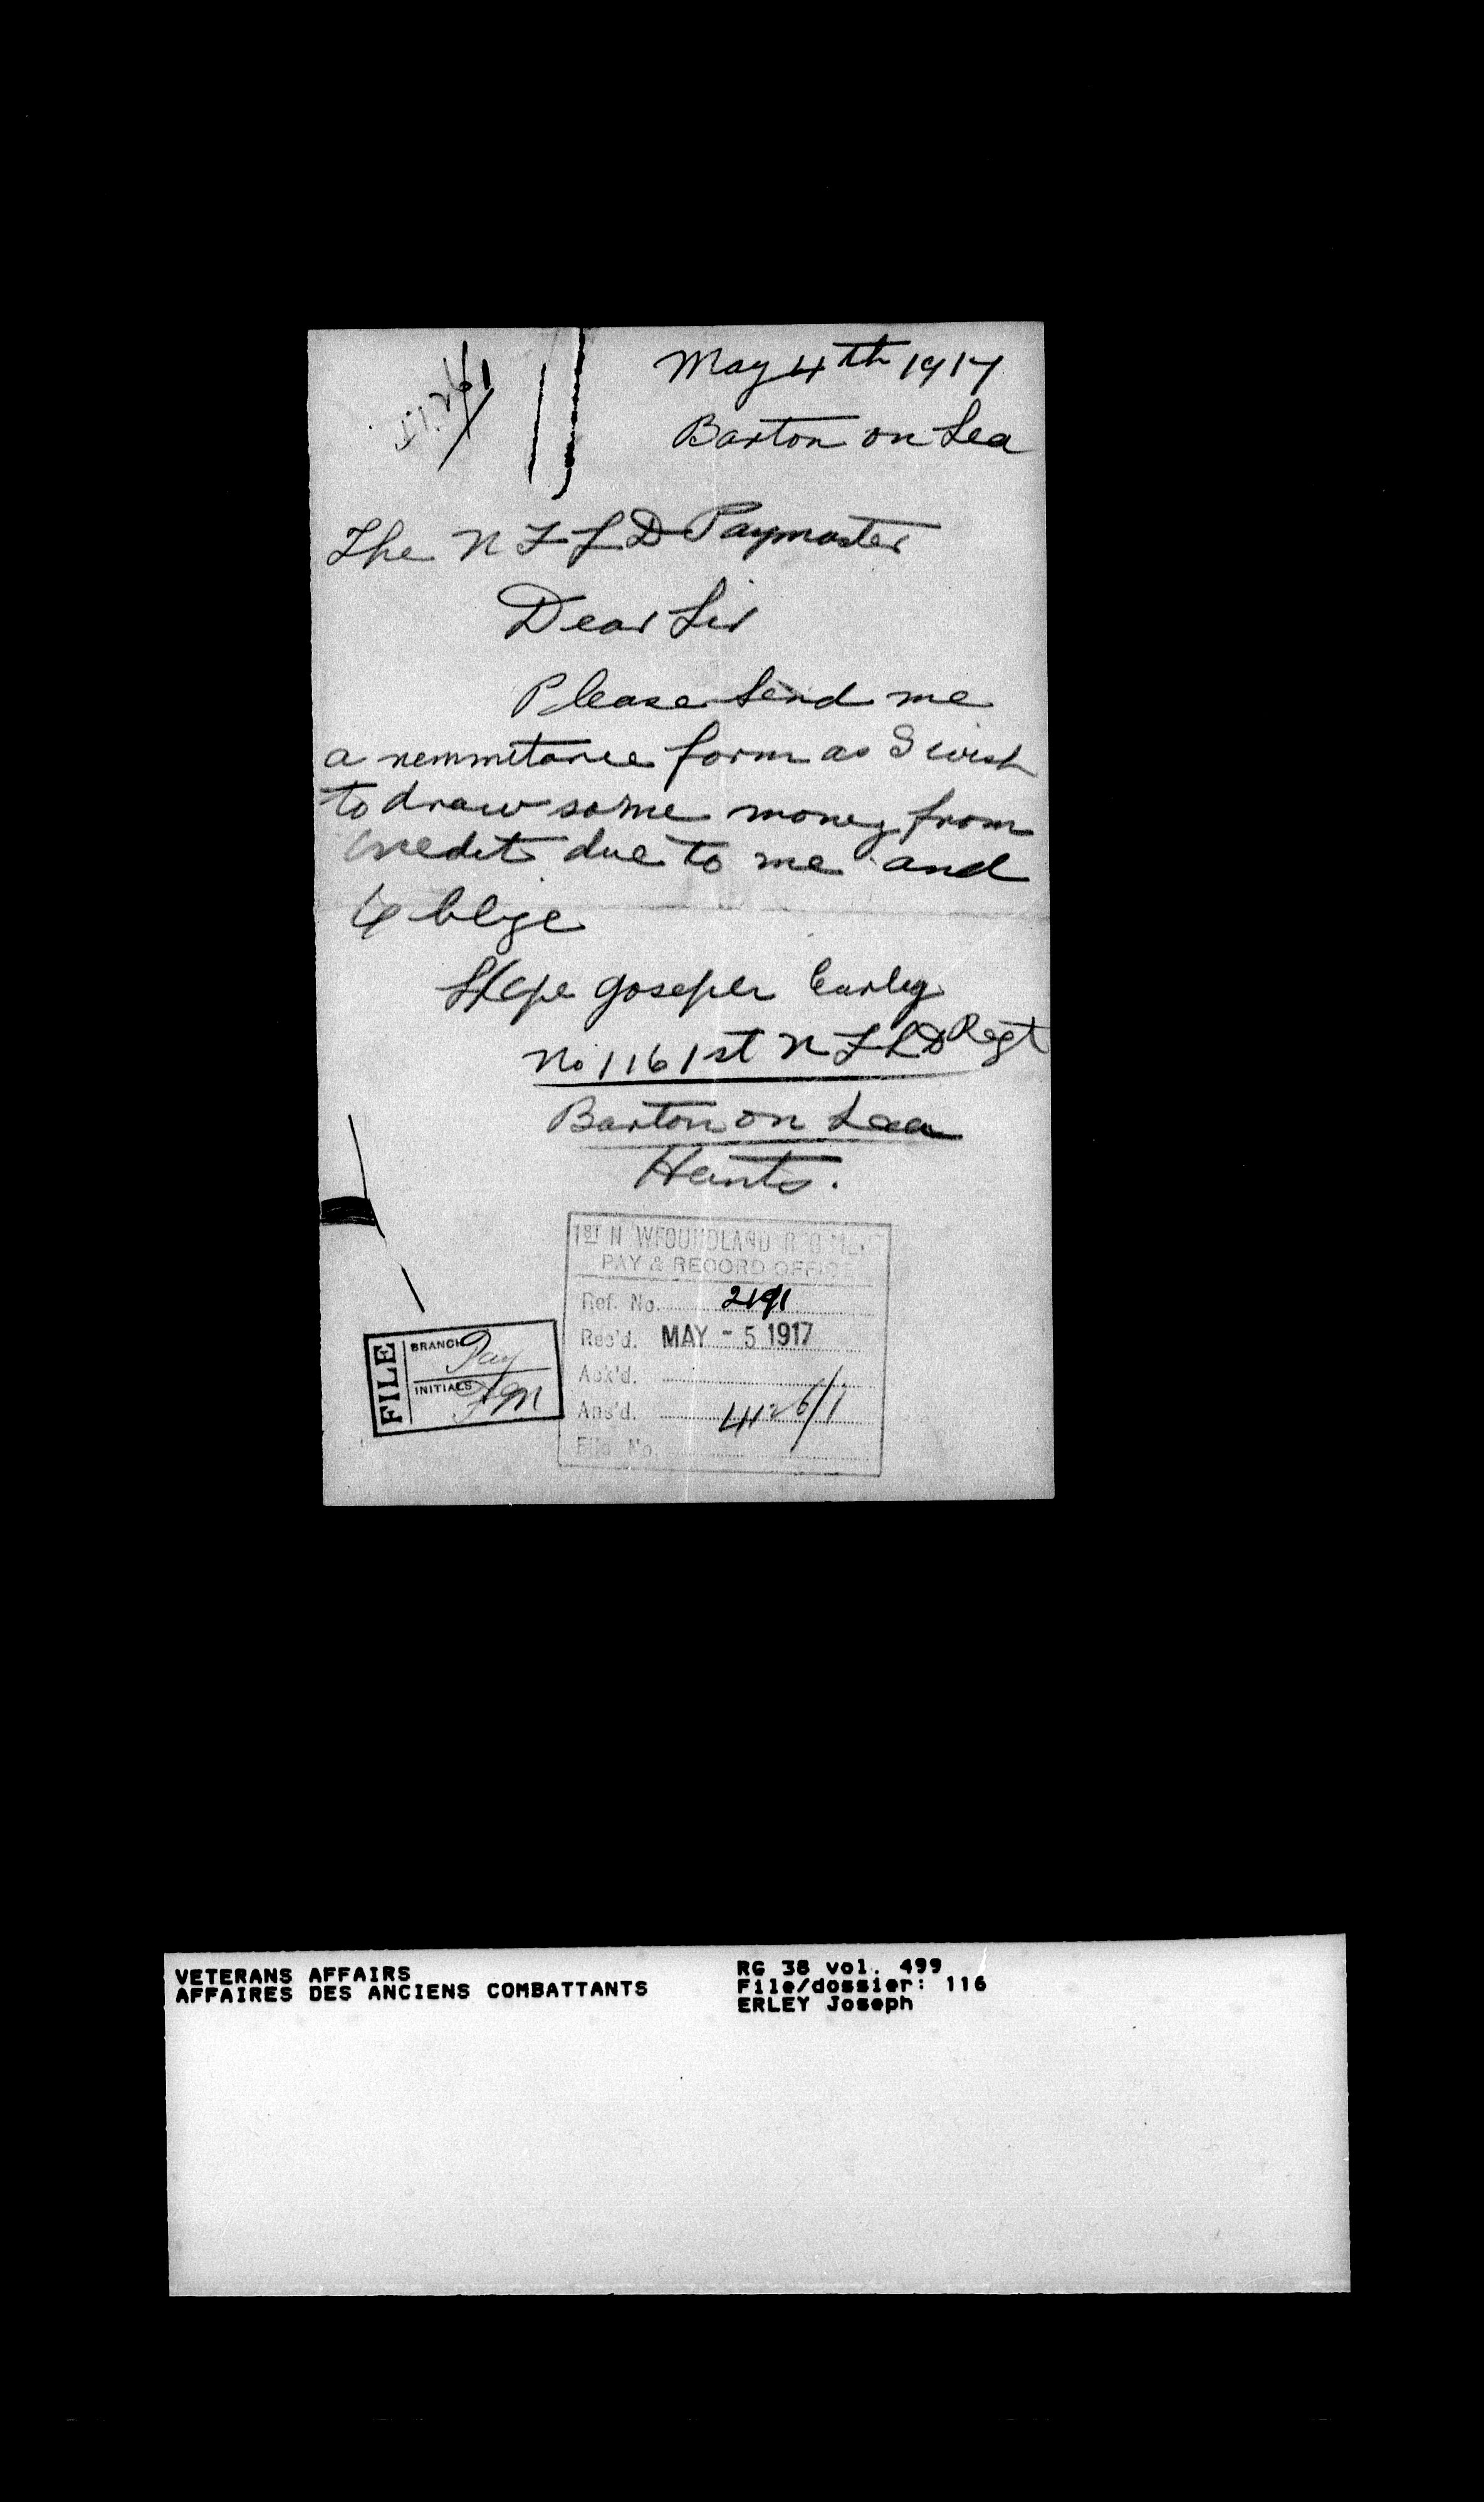 May 4th 1917
Barton on Sea
The N F L D Paymaster
Dear Sir
Please Send me
a remmitance form as I wish
to draw some money from
Credit due to me and
Oblige
L/Cpl Joseph Earley
No 116 1st N F L D Regt
Barton on Sea
Hants.
1ST N WFOUNDLAND REGIMENT
PAY & RECORD OFFICE
Ref. No. 2191
Rec'd. MAY - 5 1917
Ack'd.
Ans'd. 4126/1
File No.
FILE
BRANCH Pay
INITIALS
VETERANS AFFAIRS
AFFAIRES DES ANCIENS COMBATTANTS
RG 38 vol. 499
File/dossier: 116
ERLEY Joseph